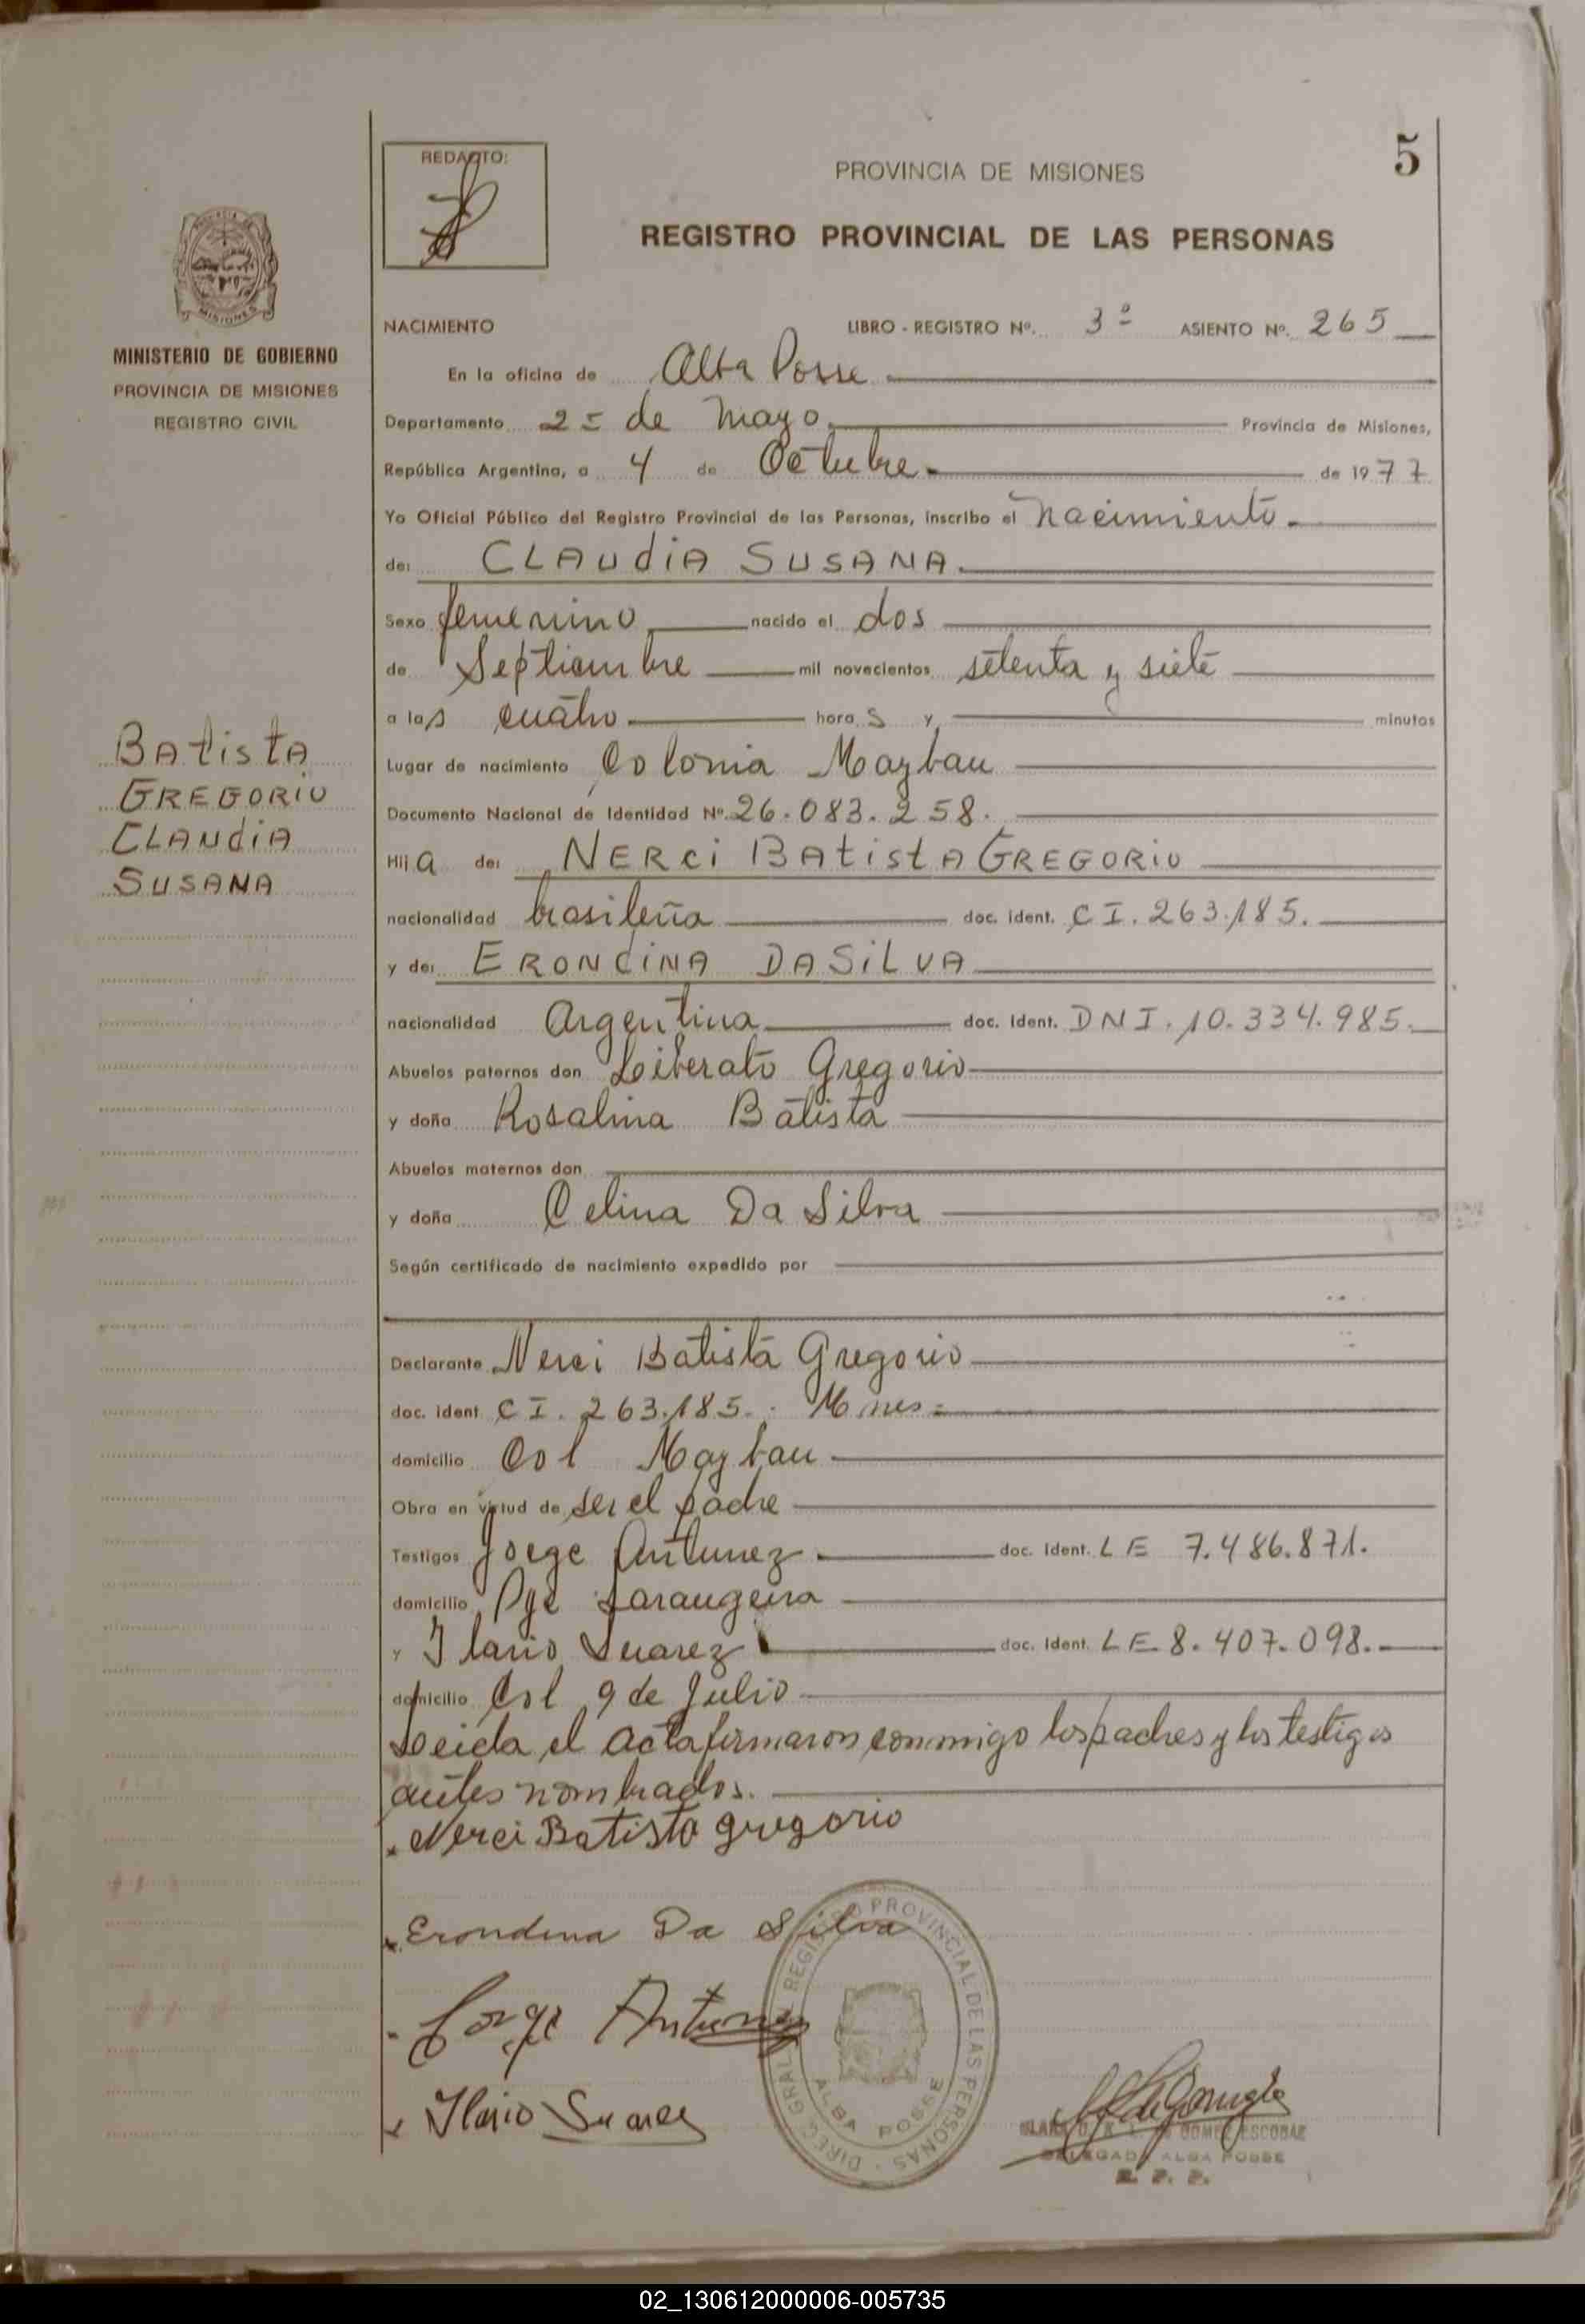 5
REDACTO:
PROVINCIA DE MISIONES
REGISTRO PROVINCIAL DE LAS PERSONAS
MISIONES
MINISTERIO DE GOBIERNO
PROVINCIA DE MISIONES
REGISTRO CIVIL
Batista
GREGORIO
CLAUDIA
SUSANA
NACIMIENTO LIBRO - REGISTRO Nº. 3º ASIENTO Nº. 265
En la oficina de Alba Posse
Departamento 25 de Mayo Provincia de Misiones,
República Argentina, a 4 de Octubre de 1977
Yo Oficial Público del Registro Provincial de las Personas, inscribo el Nacimiento
de: CLAUDIA SUSANA
Sexo femenino nacido el dos
de Septiembre mil novecientos setenta y siete
a las cuatro horas y minutos
Lugar de nacimiento Colonia Maybau
Documento Nacional de Identidad Nº 26.083.258.
Hija de: NERCI BATISTA GREGORIO
nacionalidad brasileña doc. ident. CI. 263.185.
y de: ERONDINA DA SILVA
nacionalidad Argentina doc. ident. DNI. 10.334.985.
Abuelos paternos don Leiberato Gregorio
y doña Rosalina Batista
Abuelos maternos don
y doña Celina Da Silva
Según certificado de nacimiento expedido por
Declarante Nerci Batista Gregorio
doc. ident CI. 263.185. Mnes
domicilio Col Maybau
Obra en virtud de ser el padre
Testigos Jorge Antunez doc. ident. LE 7.486.871.
domicilio Pje Larangeira
y Ilario Suarez doc. ident. LE 8.407.098.
domicilio Col 9 de Julio
Leida el acta firmaron conmigo los padres y los testigos
antes nombrados.
Nerci Batista gregorio
Erondina Da Silva
Jorge Antunez
Ilario Suarez
DIREC. GRAL. REGISTRO PROVINCIAL DE LAS PERSONAS
ALBA POSSE
GOMEZ ESCOBAR
DELEGADA ALBA POSSE
R. P. P.
02_130612000006-005735